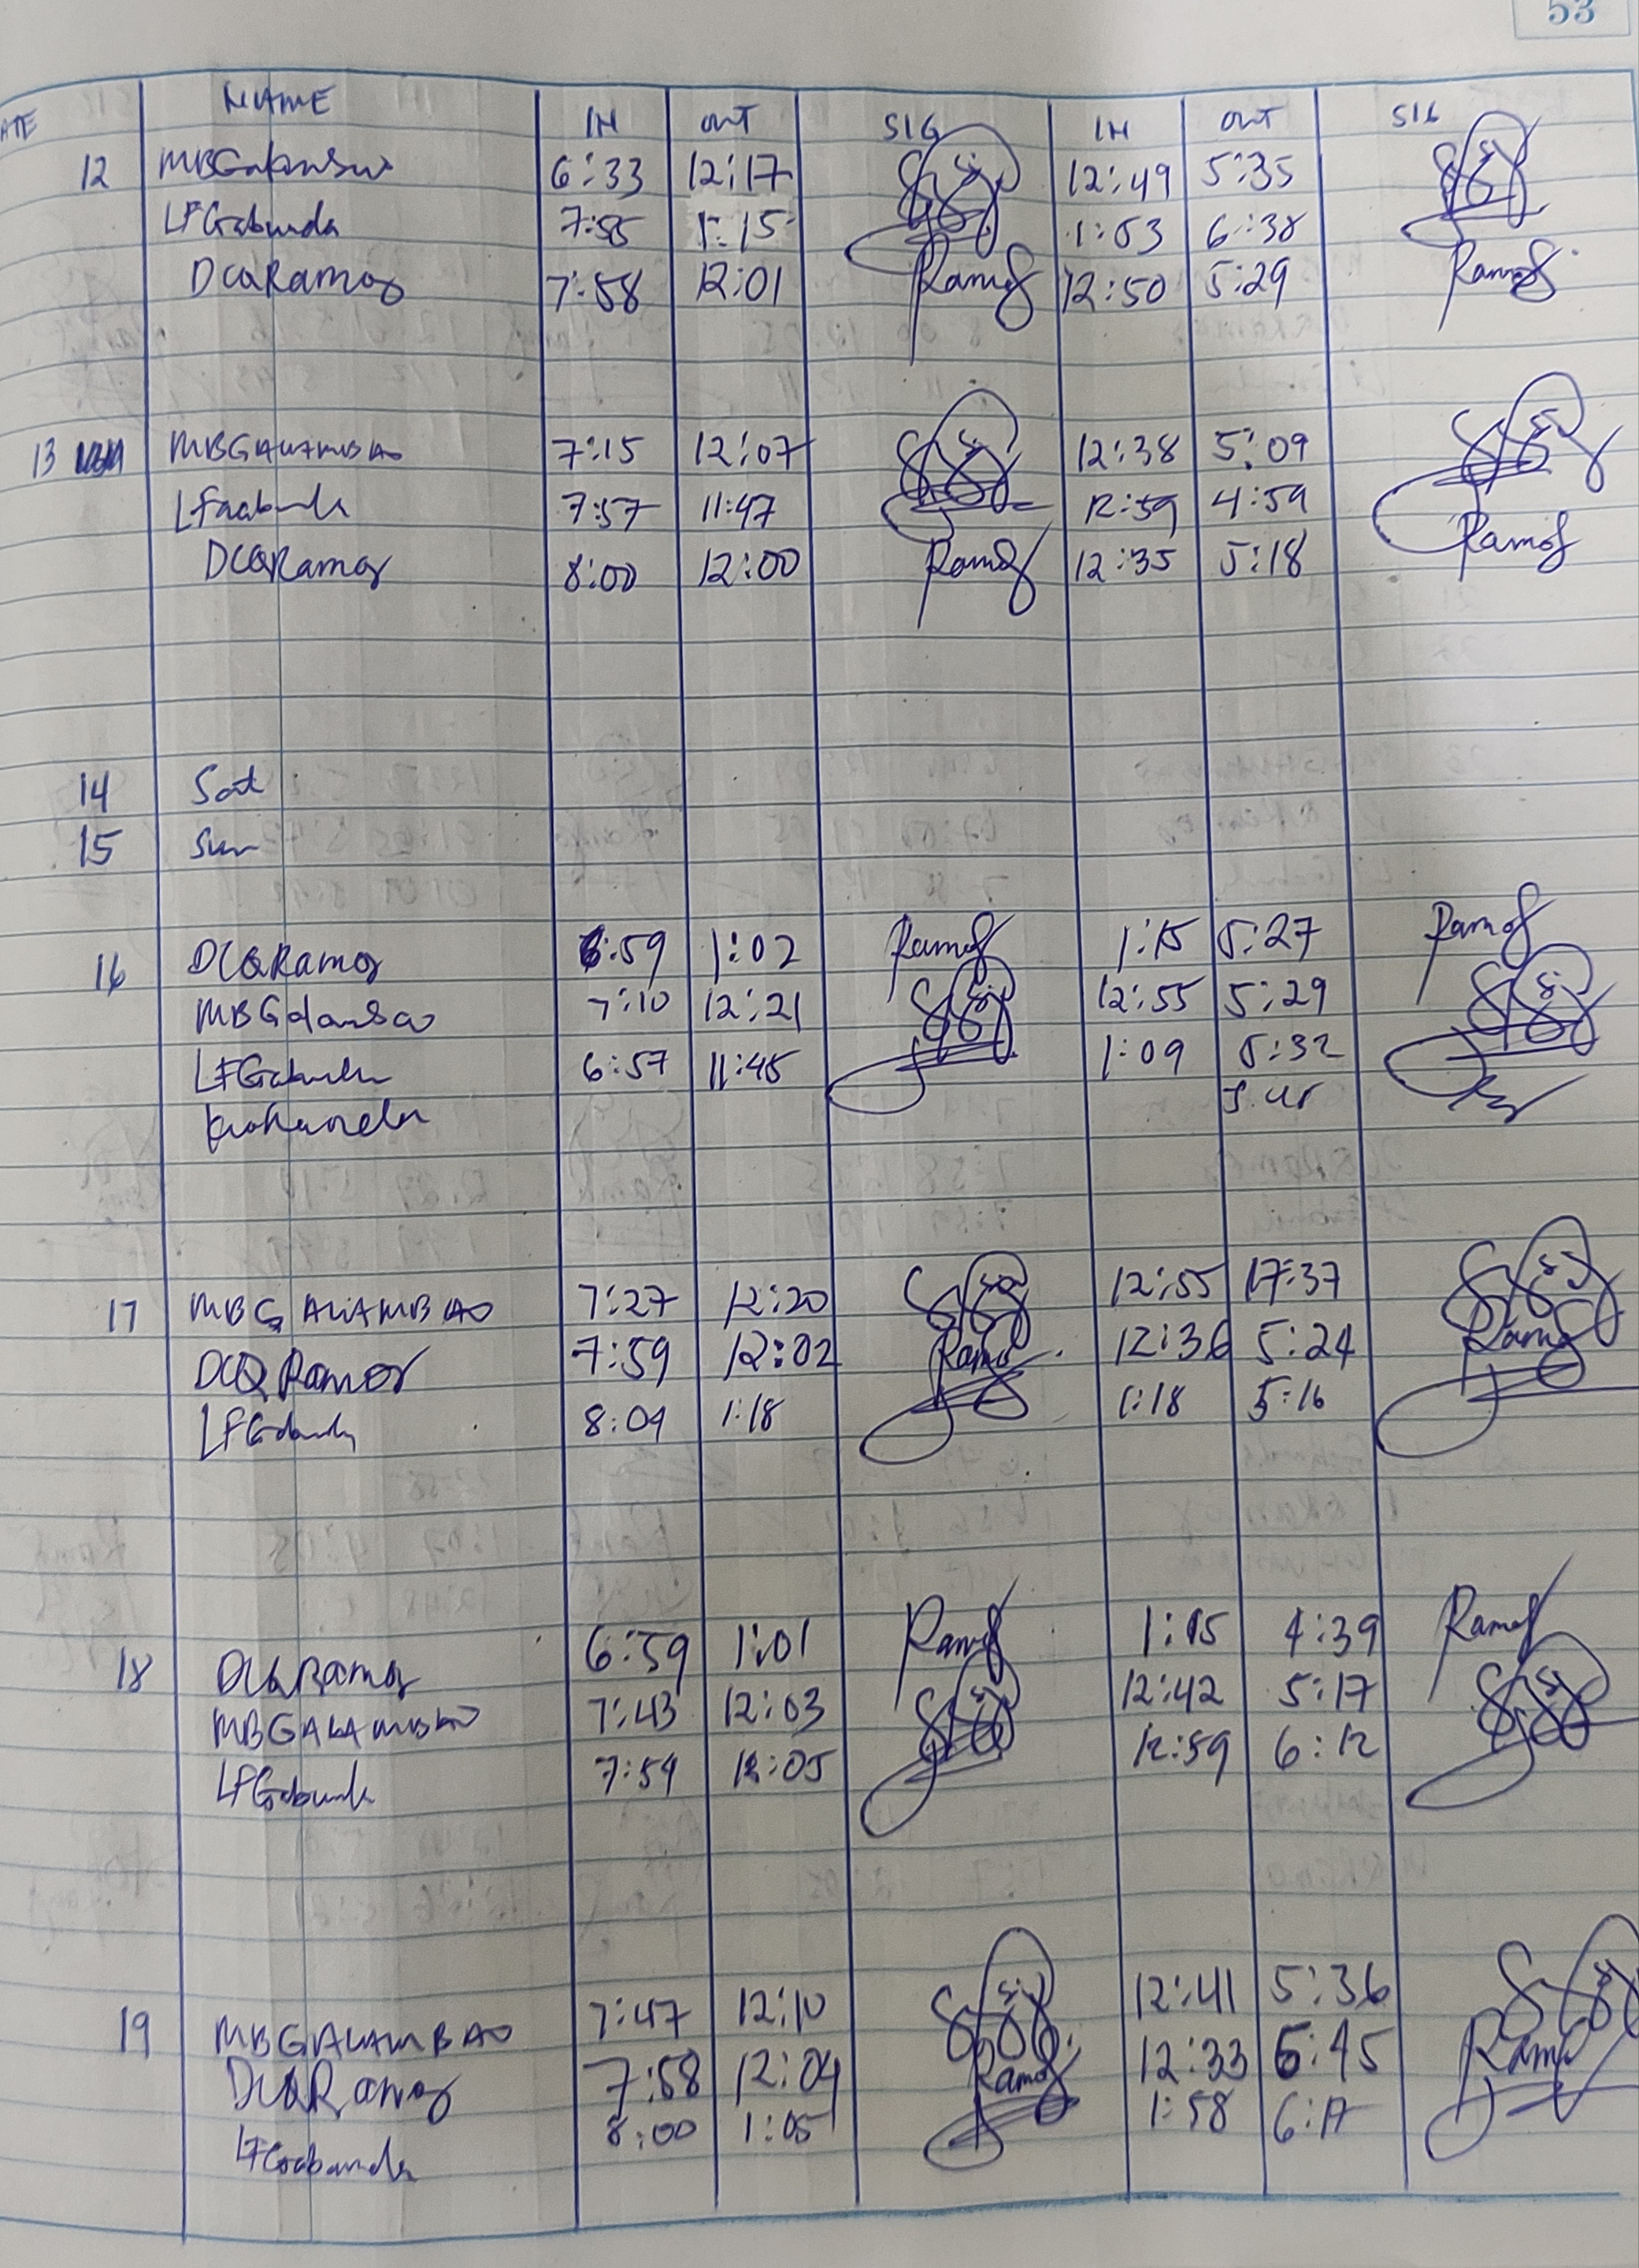 53
ATE NAME IN OUT SIG IN OUT SIG
12 MBGalambao 6:33 12:17 12:49 5:35
LFGabunda 7:55 1:15 1:03 6:38
DCQRamos 7:58 12:01 Ramos 12:50 5:29 Ramos
13 MBGALAMBAO 7:15 12:07 12:38 5:09
LFGabunda 7:57 11:47 12:59 4:59
DCQRamos 8:00 12:00 Ramos 12:35 5:18 Ramos
14 Sat
15 Sun
16 DCQRamos 6:59 1:02 Ramos 1:15 5:27 Ramos
MBGalambao 7:10 12:21 12:55 5:29
LFGabunda 6:57 11:45 1:09 5:32
17 MBGALAMBAO 7:27 12:20 12:55 17:37
DCQRamos 7:59 12:02 Ramos 12:36 5:24 Ramos
LFGabunda 8:09 1:18 1:18 5:16
18 DCQRamos 6:59 1:01 Ramos 1:15 4:39 Ramos
MBGALAMBAO 7:43 12:03 12:42 5:17
LFGabunda 7:59 12:05 12:59 6:12
19 MBGALAMBAO 7:47 12:10 12:41 5:36
DCQRamos 7:58 12:04 Ramos 12:33 5:45 Ramos
LFGabunda 8:00 1:05 1:58 6:17